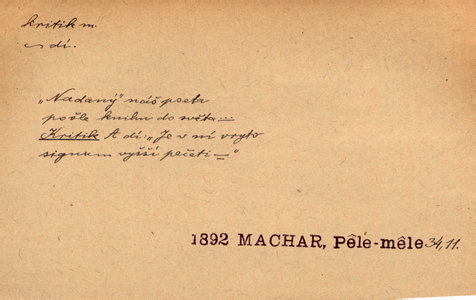 kritik m.
~ dí.
„Nadaný" náš poeta
pošle knihu do světa ...
Kritik A dí: „Je v ní vryto
signum vyšší pečeti – "
1892 MACHAR, Pêle-mêle 34, 11.